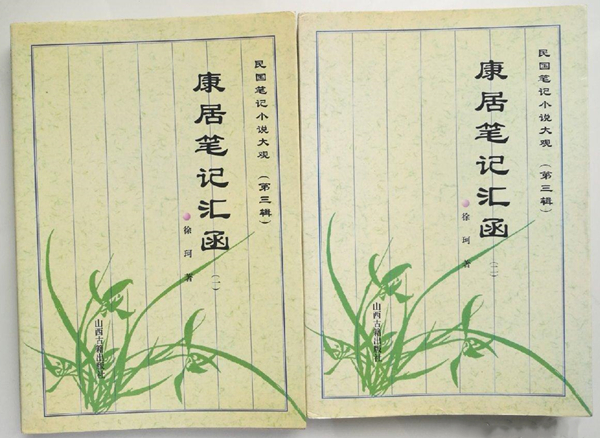 民国笔记小说大观（第三辑）
康居笔记汇函（一）
徐珂 著
山西古籍出版社
民国笔记小说大观（第三辑）
康居笔记汇函（二）
徐珂 著
山西古籍出版社